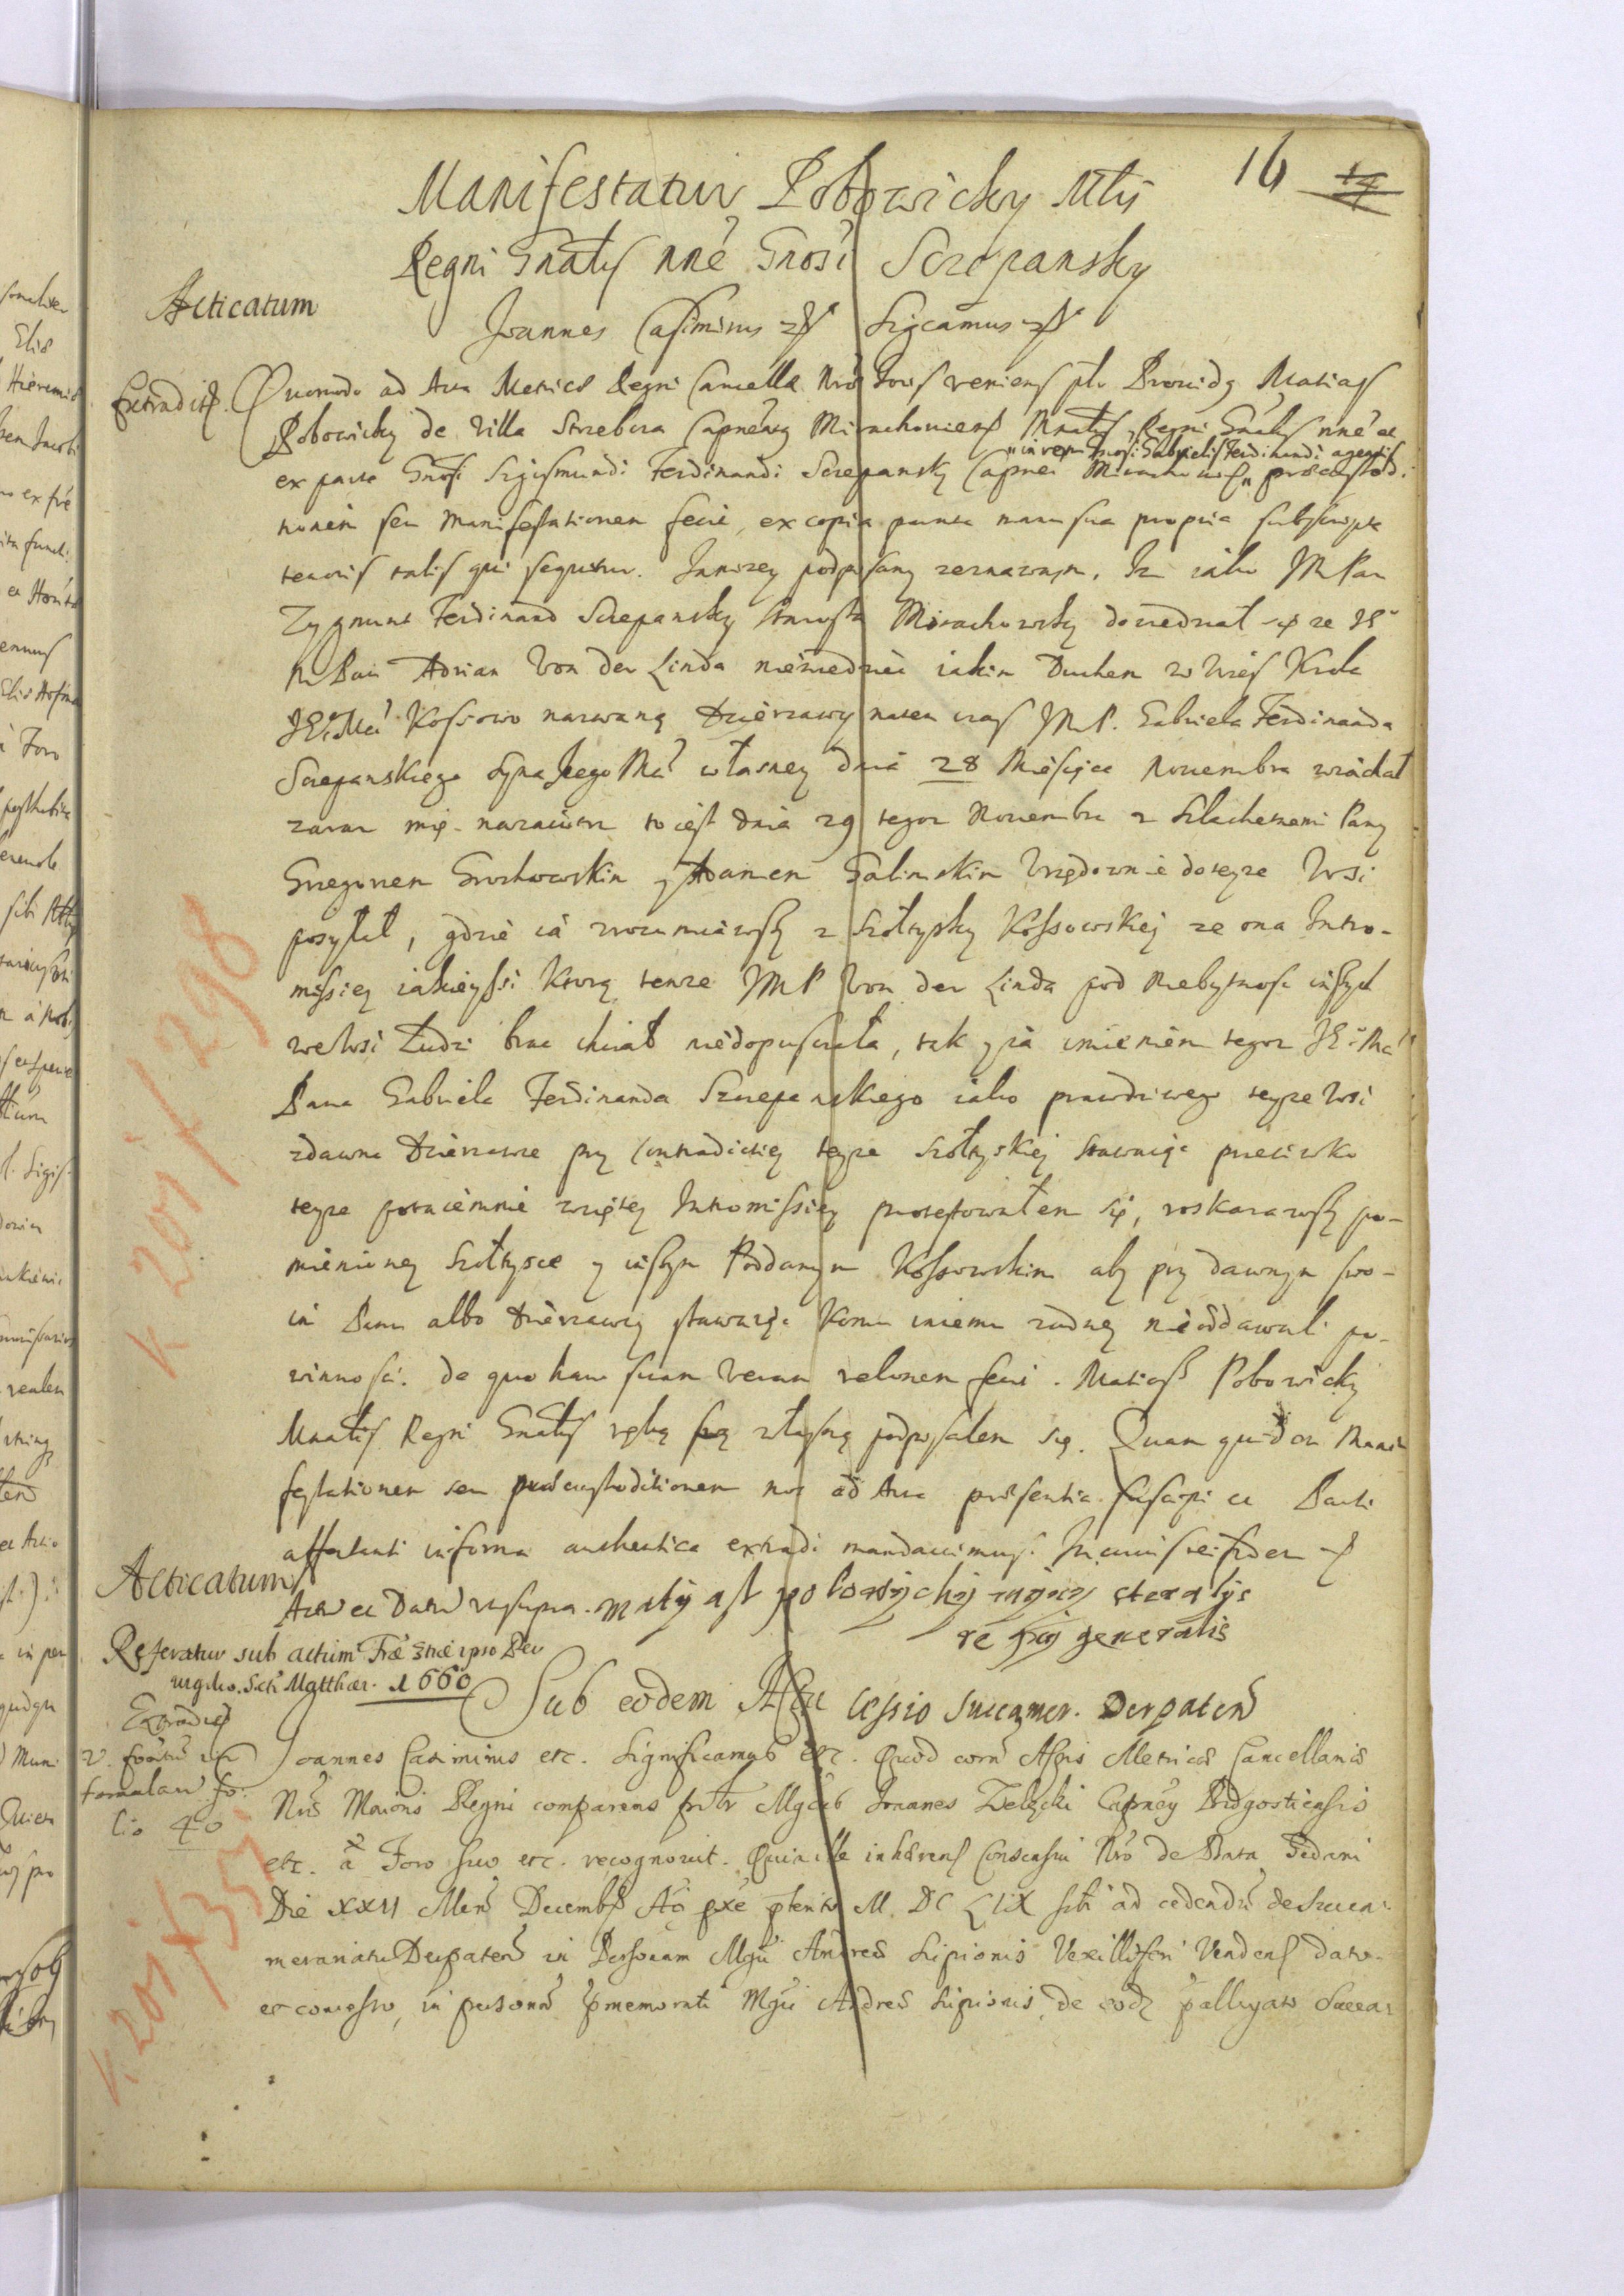 16 17
Manifestatur Pobowicky Mlis
Regni Gnalis nne Gnosi Sczepansky
Acticatum
Joannes Casimirus etc Sigcamus etc
Extradit. Quomodo ad Acta Metrices Regni Cancellae nrae Joris veniens plr Providus Matias
Pobowicky de villa Strzebcza Capneatus Mirachoviens Mnalis Regni Gnalis nne et
in rem Gnosi Gabrielis Ferdinandi agentis
ex parte Gnosi Sigismundi Ferdinandi Sczepansky Capnei Mirachoviens praecustodi-
tionem seu Manifestationem fecit, ex copia manu sua propria subscripta
tenoris talis qui sequitur. Inniżey podpisany zeznawam. Iz iako JM Pan
Zygmunt Ferdinand Sczepansky Starosta Mirachowsky dowiedział się ze JE
M Pan Adrian Von der Linda niewiedziec iakim Duchem w Wies Krola
JE Mci Kossowo nazwaną Dzierzawy naten czas JMP. Gabriela Ferdinanda
Sczepanskiego syna Jego Mci własney dnia 28 Miesiąca Nouembra wiachał
zaraz mię nazaiutrz to iest dnia 29 tegoz Nouembra z Slachetnemi Pany
Grzegorzem Grochowskim y Adamem Galinskim Vrzędownie do teyze Wsi
posyłał, gdzie ia wrozumiawszy z Szołtysky Kossowskiej ze ona Intro-
missiey iakieyssi ktorą tenze JMP Von der Linda pod niebytnosc inszych
we Wsi Ludzi brac chciał niedopusciła, tak y ia imieniem tegoz JE Mci
Pana Gabriela Ferdinanda Szczepanskiego iako prawdziwego teyze Wsi
zdawna Dzierzawce przy Contradictiey teyze Szołtyskiej stawaiąc przeciwko
teyze potaiemnie wziętey Intromissiey protestowałem się, roskazawszy po-
mienioney Szołtysce y inszym Poddanym Kossowskim aby przy dawnym swo-
im Panu albo Dzierzawcy stawaiąc komu inemu zadney nieoddawali po-
winnosci. de quo hanc suam veram relonem feci. Matiasz Pobowicky
Mnalis Regni Gnalis ręką swą własną podpisalem się. Quam quidem Mani-
festationem seu praecustoditionem nos ad Acta praesentia suscipi et Parti
affectanti in forma authentica extradi mandauimus. In cuius rei fidem etc
Acticatum
Actum et Datum ut supra. matyast pobowyckij
regnij generalis
Referatur sub actum
Sti Matthaei. 1660
Sub eodem Actu Cessio Succamer. Derpaten
Extradit
Joannes Casimirus etc. Significamus etc. Quod coram Actis Metrices Cancellariae
folio 40
Nrae Maioris Regni comparens prtr Mgcus Joannes Zelęcki Capneus Bidgostiensis
etc. a Foro suo etc. recognouit. Quia ille inhaerens Consensui Nro de Data Gedani
Die XXII Mens Decembris Ao pxe pterito M. DC LIX sibi ad cedendum de Succa-
merariatu Derpatens in Personam Mgci Andreae Lipionis Vexilliferi Vendens dato
et concesso, in personam pmemorati Mgci Andreae Lipionis de eod
K 201 f 298
K 201 f 357